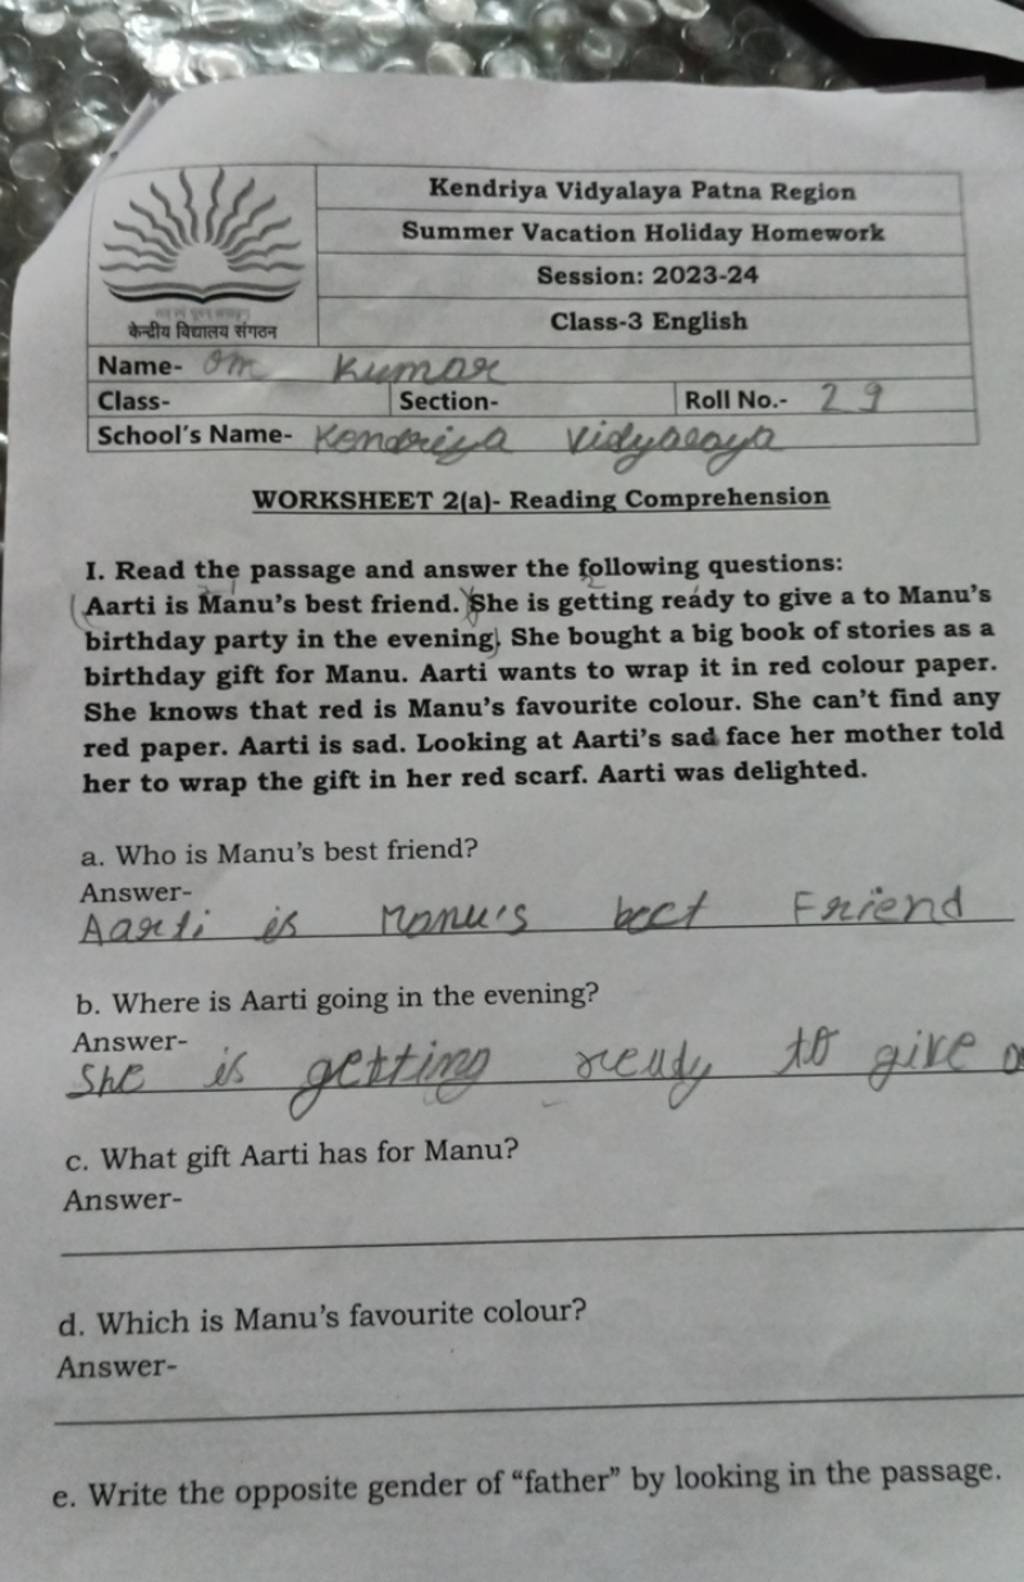 Kendriya Vidyalaya Patna Region
Summer Vacation Holiday Homework
Session: 2023-24
केन्द्रीय विद्यालय संगठन
Class-3 English
Name- Om Kumar
Class- Section- Roll No.- 29
School's Name- Kendriya Vidyalaya
WORKSHEET 2(a)- Reading Comprehension
I. Read the passage and answer the following questions:
Aarti is Manu's best friend. She is getting ready to give a to Manu's
birthday party in the evening. She bought a big book of stories as a
birthday gift for Manu. Aarti wants to wrap it in red colour paper.
She knows that red is Manu's favourite colour. She can't find any
red paper. Aarti is sad. Looking at Aarti's sad face her mother told
her to wrap the gift in her red scarf. Aarti was delighted.
a. Who is Manu's best friend?
Answer-
Aarti is Manu's bect Friend
b. Where is Aarti going in the evening?
Answer-
She is getting ready to give a
c. What gift Aarti has for Manu?
Answer-
d. Which is Manu's favourite colour?
Answer-
e. Write the opposite gender of “father” by looking in the passage.